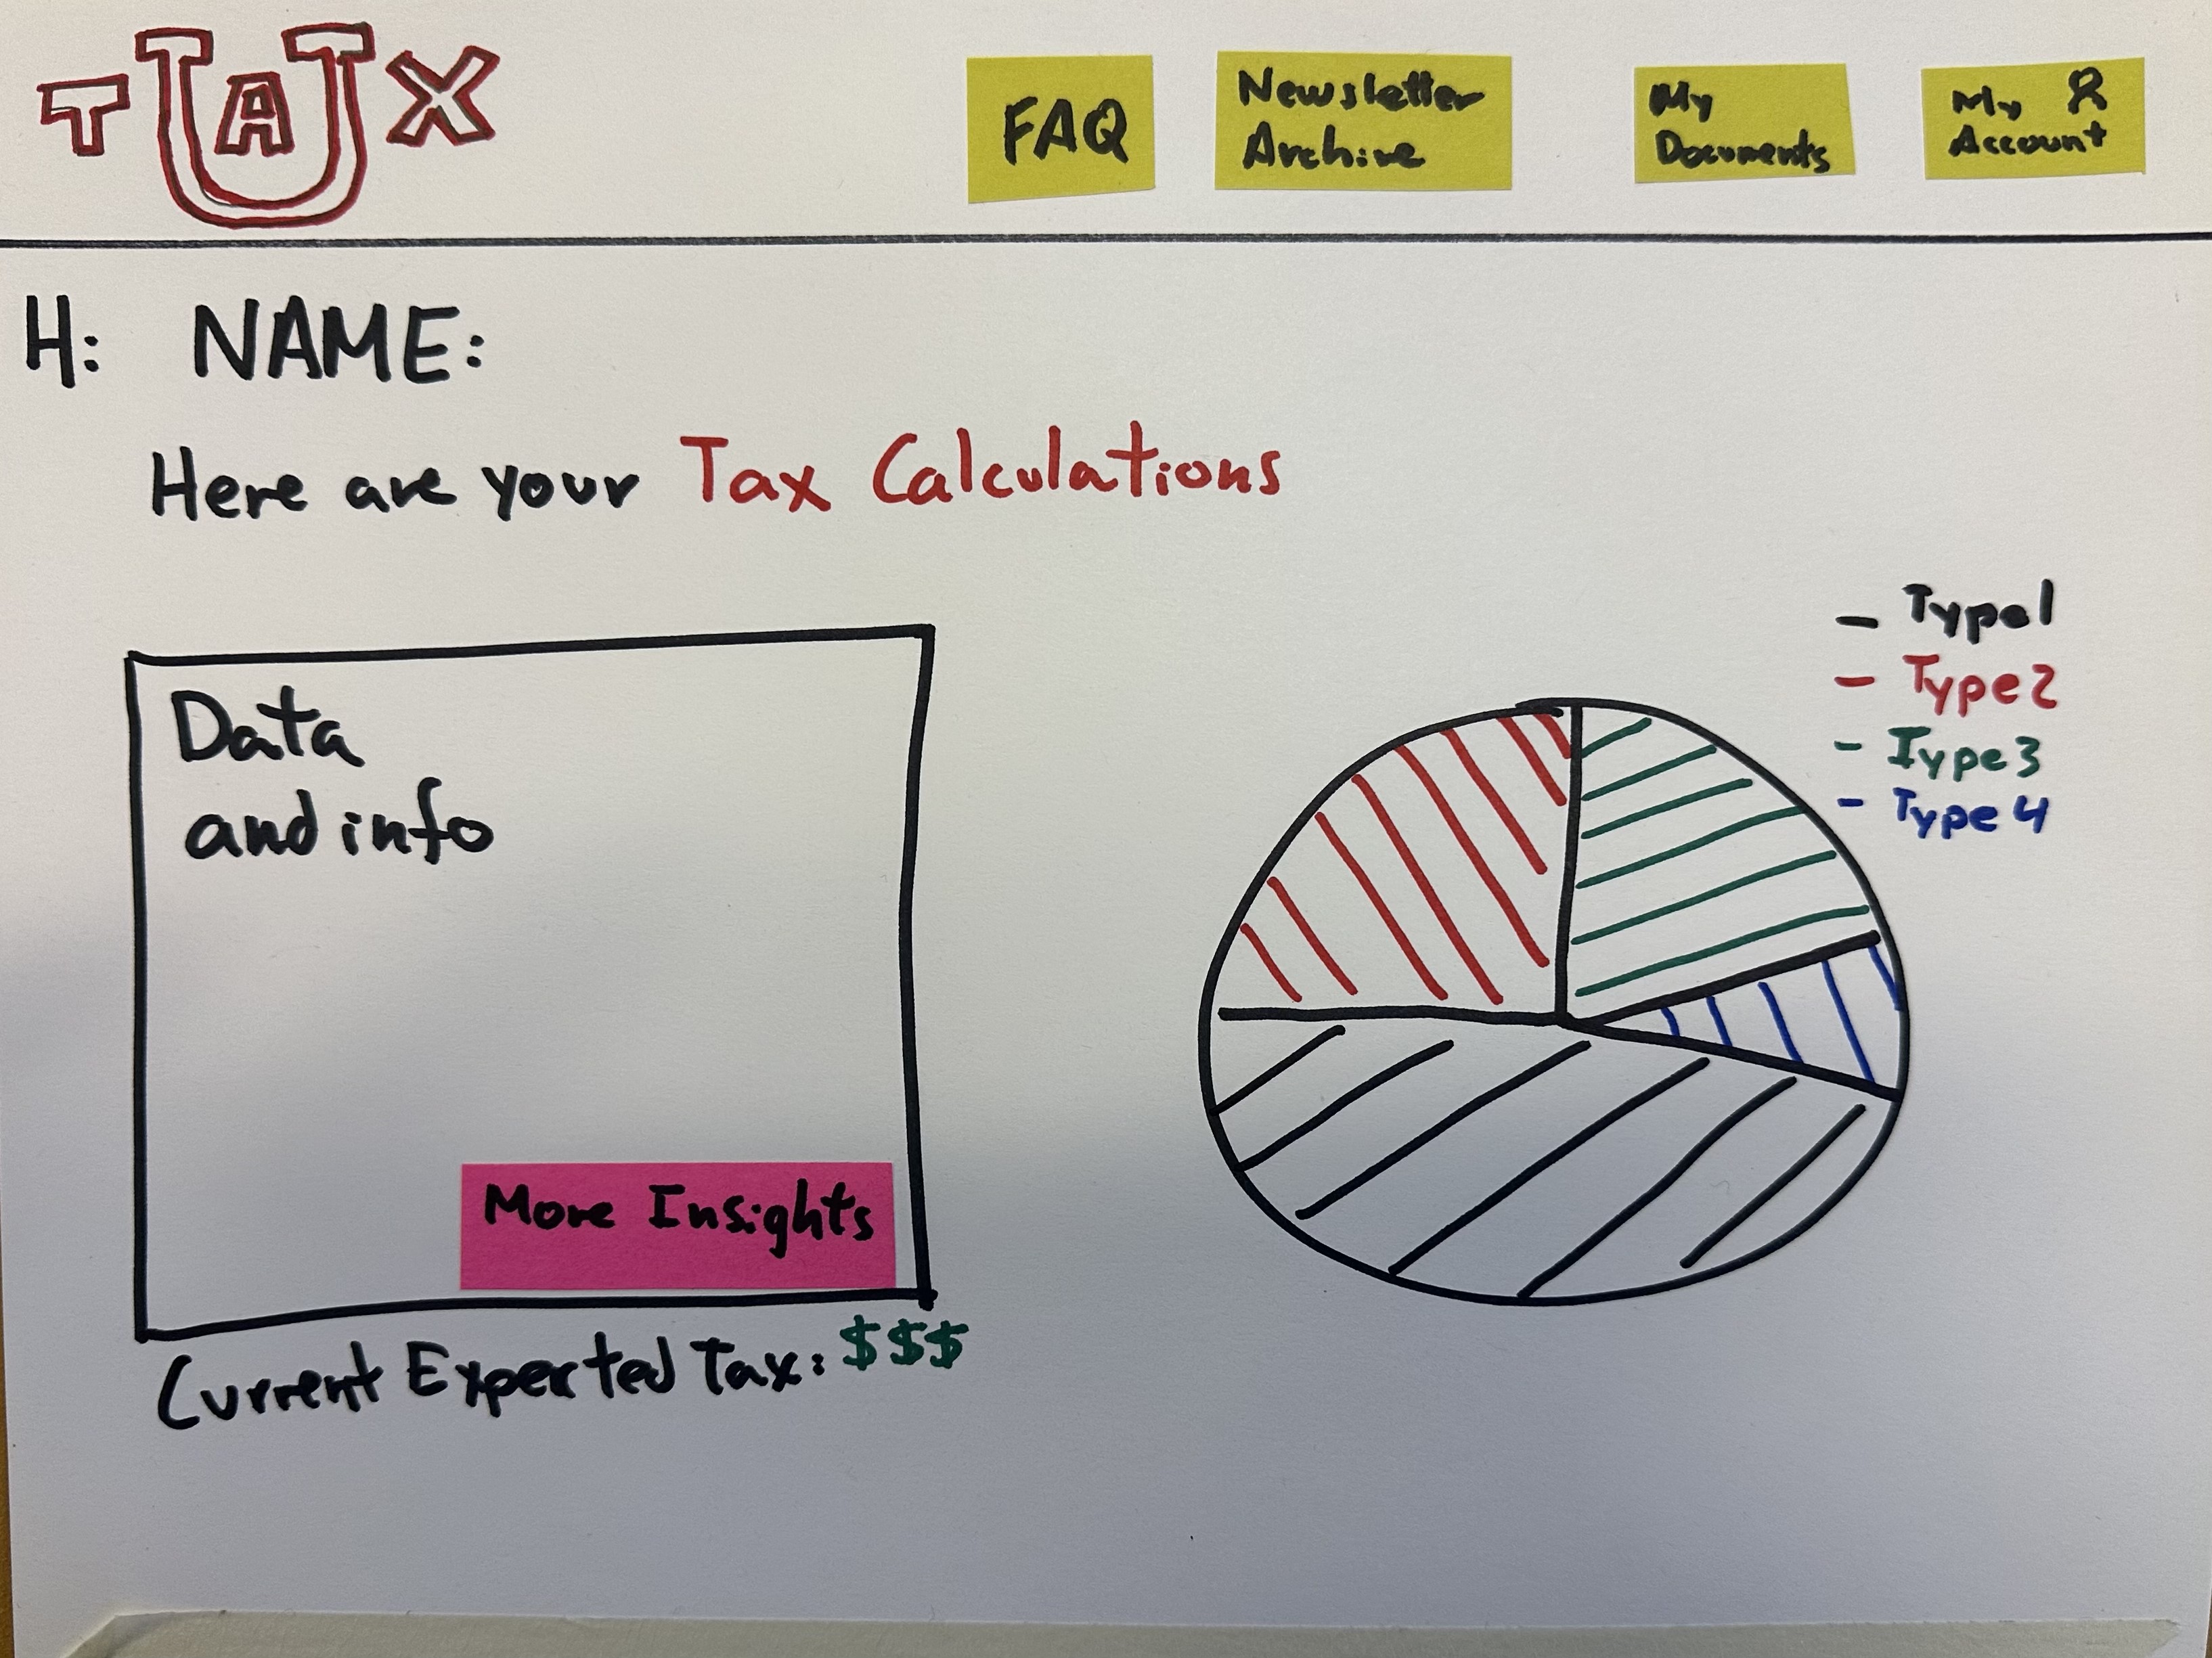 TUAX
FAQ
Newsletter
Archive
My
Documents
My
Account
Hi NAME:
Here are your Tax Calculations
Data
and info
More Insights
Current Expected Tax: $$$
- Type1
- Type2
- Type3
- Type4